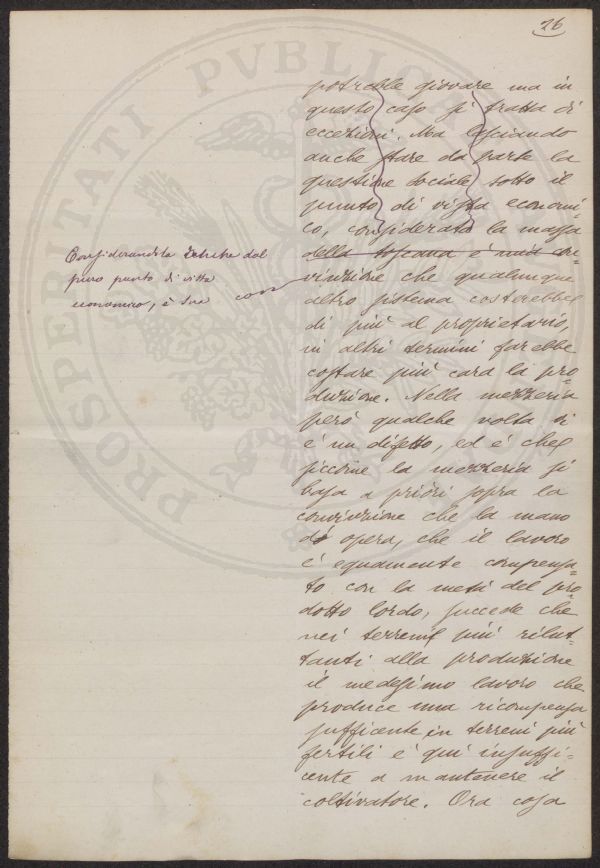 26
potrebbe giovare ma in
questo caso si tratta di
eccezioni. Ma lasciando
anche stare da parte la
questione sociale sotto il
punto di vista economi=
co, considerato la massa
della toscana è mia con=
vinzione che qualunque
altro sistema costerebbe
di più al proprietario,
in altri termini farebbe
costare più cara la pro=
duzione. Nella mezzeria
però qualche volta vi
è un difetto, ed è che
siccome la mezzeria si
basa a priori sopra la
convinzione che la mano
d' opera, che il lavoro
è equamente compensa=
to con la metà del pro=
dotto lordo, succede che
nei terreni più rilut=
tanti alla produzione
il medesimo lavoro che
produce una ricompensa
sufficente in terreni più
fertili è qui insuffi=
cente a mantenere il
coltivatore. Ora cosa
Considerandola dal
puro punto di vista
economico, è sua con
PROSPERITATI PVBLICAE